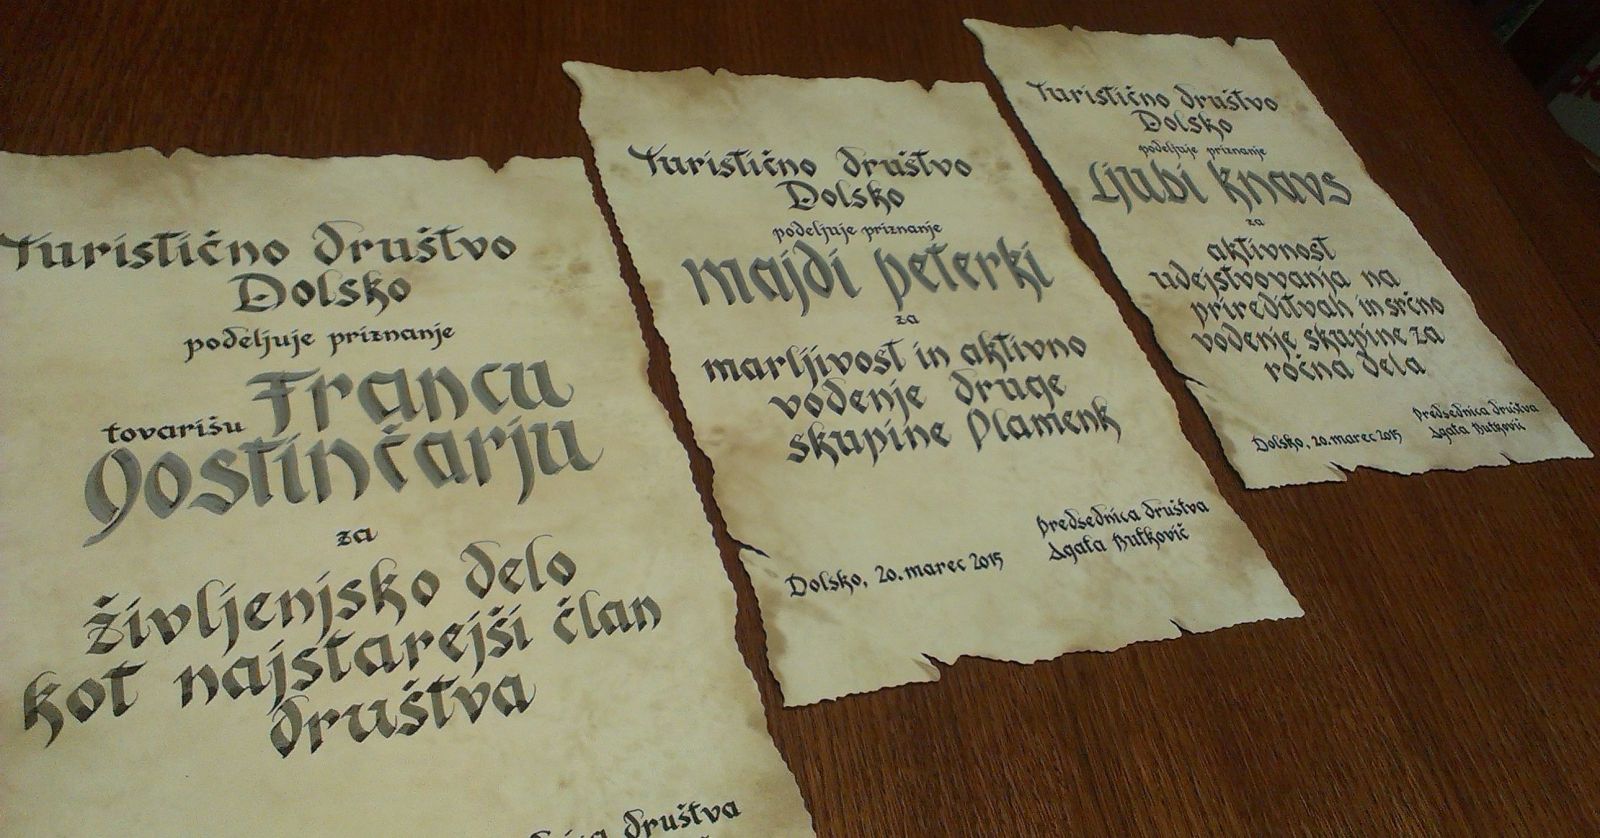 Turistično društvo
Dolsko
podeljuje priznanje
tovarišu Francu
Gostinčarju
za
življenjsko delo
kot najstarejši član
društva
društva
Turistično društvo
Dolsko
podeljuje priznanje
Majdi Peterki
za
marljivost in aktivno
vodenje druge
skupine Plamenk
Predsednica društva
Dolsko, 20. marec 2015
Agata Butkovič
Turistično društvo
Dolsko
podeljuje priznanje
Ljubi Knavs
za
aktivnost
udejstvovanja na
prireditvah in srčno
vodenje skupine za
ročna dela
Predsednica društva
Dolsko, 20. marec 2015
Agata Butkovič